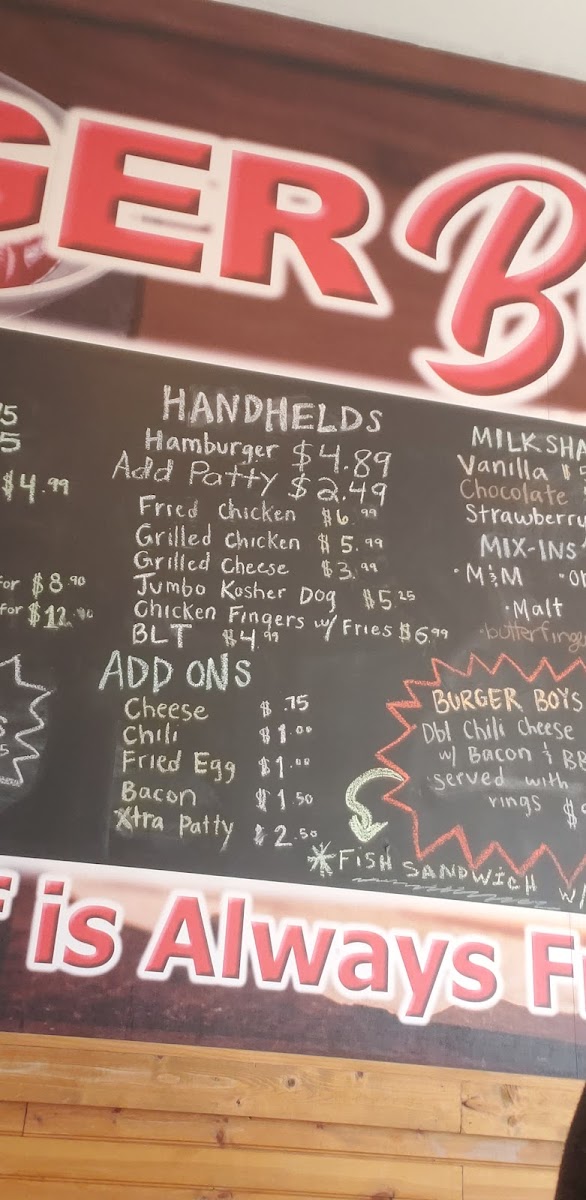 GER B
75
5
$4.99
for $8.90
for $12.90
HANDHELDS
Hamburger $4.89
Add Patty $2.49
Fried Chicken $6.99
Grilled Chicken $5.99
Grilled Cheese $3.99
Jumbo Kosher Dog $5.25
Chicken Fingers w/ Fries $6.99
BLT $4.99
ADD ONS
Cheese $.75
Chili $1.00
Fried Egg $1.00
Bacon $1.50
Xtra Patty $2.50
MILKSHA
Vanilla
Chocolate
Strawberry
MIX-INS
·M&M
·Malt
·butterfing
BURGER BOYS
Dbl Chili Cheese
w/ Bacon & BB
served with
rings $
*FISH SANDWICH w/
is Always F